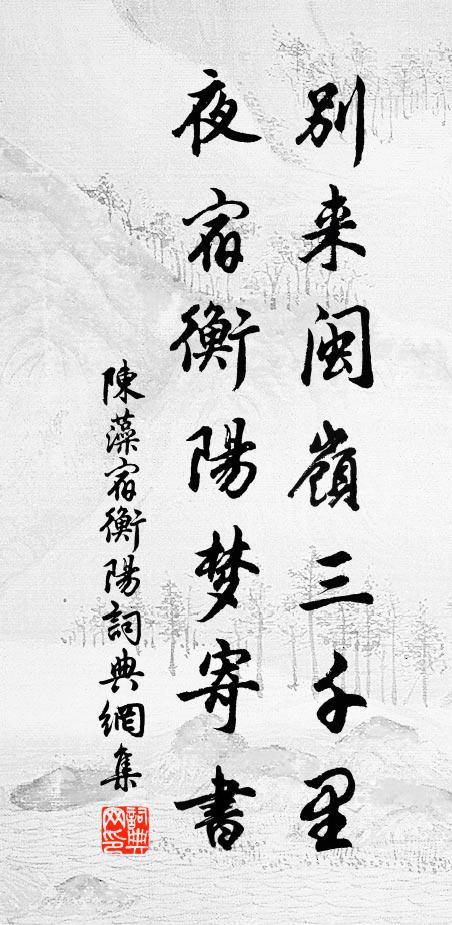 別来闽嶺三千里
夜宿衡陽梦寄書
陳藻宿衡陽詞典網集
詞典网印